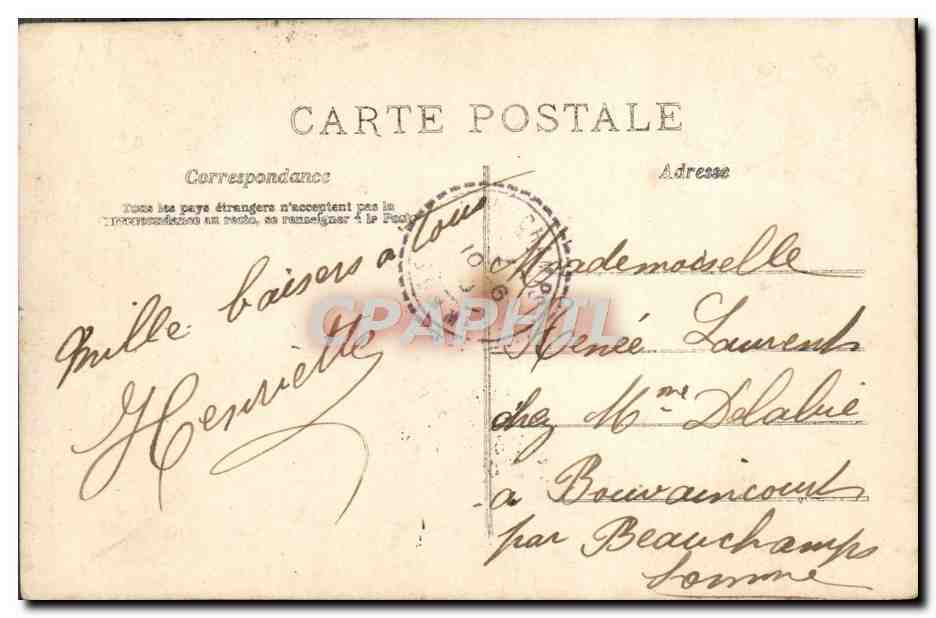 CARTE POSTALE
Correspondance
Tous les pays étrangers n'acceptent pas la
correspondance au recto, se renseigner à la Poste
Mille baisers a tous
Henriette
Adresse
Mademoiselle
Renée Laurent
chez Mme Delabie
a Bouvaincourt
par Beauchamps
Somme
CPAPHIL